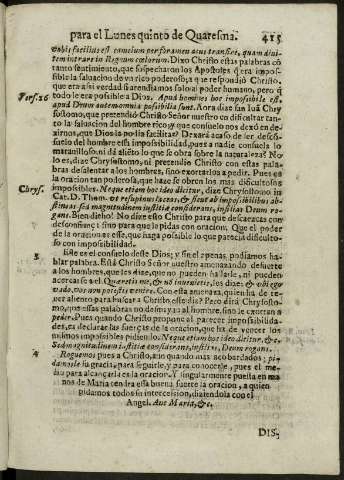 para el Lunes quinto de Quaresma. 415
vobis facilius est camelum per foramen acus transire, quam divi-
tem intrare in Regnum cœlorum. Dixo Christo estas palabras cõ
tanto sentimiento, que sospecharon los Apostoles q̃ era impos-
sible la salvacion de vn rico poderoso; a que respondiò Christo,
que era assi verdad si atendiamos solo al poder humano, pero q̃
Vers. 26 todo le era posible a Dios. Apud homines hoc impossibile est,
apud Deum autem omnia possibilia sunt. Aora dize san Iuã Chry
sostomo, que pretendiò Christo Señor nuestro en dificultar tan-
to la salvacion del hombre rico, y que consuelo nos dexò en de-
zirnos, que Dios lo podia facilitar? Dexarà acaso de ser descõ-
suelo del hombre esta impossibilidad, pues a nadie consuela lo
maravilloso, ni dà aliẽto lo que se obra sobre la naturaleza? No
lo es, dize Chrysostomo, ni pretendiò Christo con estas pala-
bras desalentar a los hombres, sino exortarlos a pedir. Pues es
la oracion tan poderosa, que haze se obren los mas dificultosos
Chrys. impossibles. Neque etiam hoc ideo dicitur, dize Chrysostomo in
Cat. D. Thom. vt resupinus iaceas, & sicut ab impossibilibus ab-
stineas: sed magnitudinem iustitiæ considerans, insilias Deum ro-
gans. Bien dicho! No dize esto Christo para que descaezcas con
desconfianças sino para que la pidas con oracion. Que el poder
de la oracion es esse, que haga posible lo que parecia dificulto-
so con impossibilidad.
3. Este es el consuelo deste Dios; y sin el penas, podiamos ha-
blar palabra. Està Christo Señor nuestro amenazando desuerte
a los hombres, que les dize, que no pueden hallarle, ni pueden
acercarse a el. Quæretis me, & non invenietis, les dize: & vbi ego
vado, vos non potestis venire. Con esta amenaza, quien ha de te-
ner aliento para buscar a Christo este dia? Pero dirà Chrysosto-
mo, que essas palabras no desmayan al hombre, sino le exortan a
pedir. Pues quando Christo propone al parecer impossibilida-
des, es declarar las fuerças de la oracion, que ha de vencer los
mismos impossibles pidiendolos. Neque etiam hoc ideo dicitur, & c.
Sed magnitudinem iustitiæ considerans, insilias, Deum rogans.
4. Roguemos pues a Christo, aun quando mas acobardados; pi-
damosle su gracia, para seguirle, y para conocerle, pues el me-
dio para alcançarla es la oracion. Y singularmente puesta en ma-
nos de Maria tendra essa buena suerte la oracion, a quien
pidamos todos su intercession, diziendola con el
Angel. Ave Maria, &c.
DIS-